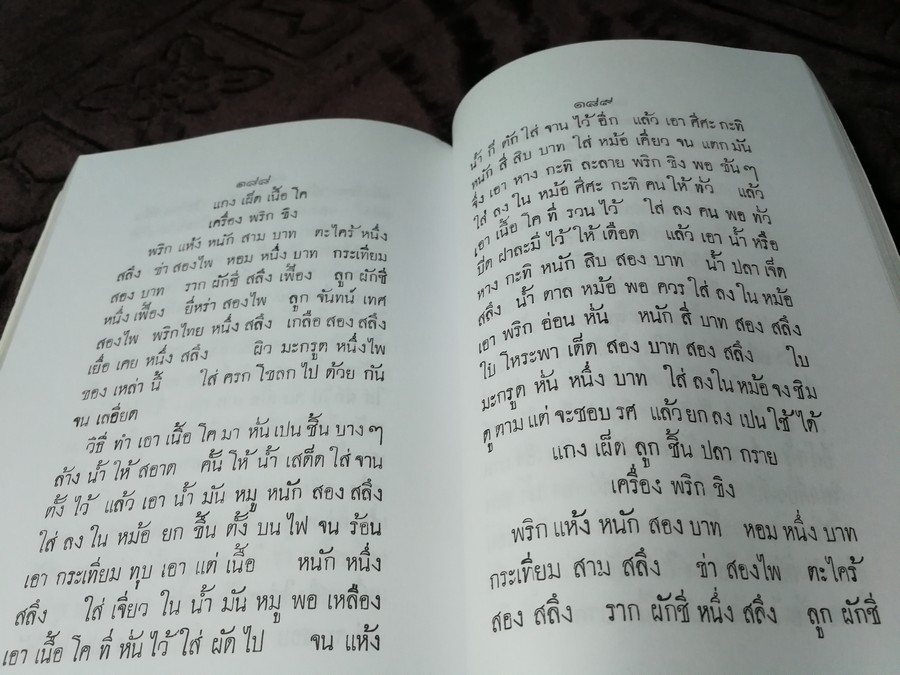 ๑๘๘
แกง เผ็ด เนื้อ โค
เครื่อง พริก ขิง
พริก แห้ง หนัก สาม บาท ตะไคร้ หนึ่ง
สลึง ข่า สองไพ หอม หนึ่ง บาท กระเทียม
สอง บาท ราก ผักชี สลึง เฟื้อง ลูก ผักชี
หนึ่ง เฟื้อง ยี่หร่า สองไพ ลูก จันทน์ เทศ
สองไพ พริกไทย หนึ่ง สลึง เกลือ สอง สลึง
เยื่อ เคย หนึ่ง สลึง ผิว มะกรูด หนึ่งไพ
ของ เหล่า นี้ ใส่ ครก โขลก ไป ด้วย กัน
จน เลอียด
วิธี ทำ เอา เนื้อ โค มา หั่น เปน ชิ้น บาง ๆ
ล้าง น้ำ ให้ สอาด คั้น ให้ น้ำ เสด็ด ใส่ จาน
ตั้ง ไว้ แล้ว เอา น้ำ มัน หมู หนัก สอง สลึง
ใส่ ลง ใน หม้อ ยก ขึ้น ตั้ง บน ไฟ จน ร้อน
เอา กระเทียม ทุบ เอา แต่ เนื้อ หนัก หนึ่ง
สลึง ใส่ เจียว ใน น้ำ มัน หมู พอ เหลือง
เอา เนื้อ โค ที่ หั่น ไว้ ใส่ ผัด ไป จน แห้ง
๑๘๙
น้ำ ก็ ตัก ใส่ จาน ไว้ อีก แล้ว เอา ศีศะ กะทิ
หนัก สี่ สิบ บาท ใส่ หม้อ เคี่ยว จน แตก มัน
จึ่ง เอา หาง กะทิ ละลาย พริก ขิง พอ ข้น ๆ
ใส่ ลง ใน หม้อ ศีศะ กะทิ คน ให้ ทั่ว แล้ว
เอา เนื้อ โค ที่ รวน ไว้ ใส่ ลง คน พอ ทั่ว
ปิด ฝาละมี ไว้ ให้ เดือด แล้ว เอา น้ำ หรือ
หาง กะทิ หนัก สิบ สอง บาท น้ำ ปลา เจ็ด
สลึง น้ำ ตาล หม้อ พอ ควร ใส่ ลง ใน หม้อ
เอา พริก อ่อน หั่น หนัก สี่ บาท สอง สลึง
ใบ โหระพา เด็ด สอง บาท สอง สลึง ใบ
มะกรูด หั่น หนึ่ง บาท ใส่ ลง ใน หม้อ จง ชิม
ดู ตาม แต่ จะชอบ รศ แล้ว ยก ลง เปน ใช้ ได้
แกง เผ็ด ลูก ชิ้น ปลา กราย
เครื่อง พริก ขิง
พริก แห้ง หนัก สอง บาท หอม หนึ่ง บาท
กระเทียม สาม สลึง ข่า สองไพ ตะไคร้
สอง สลึง ราก ผักชี หนึ่ง สลึง ลูก ผักชี